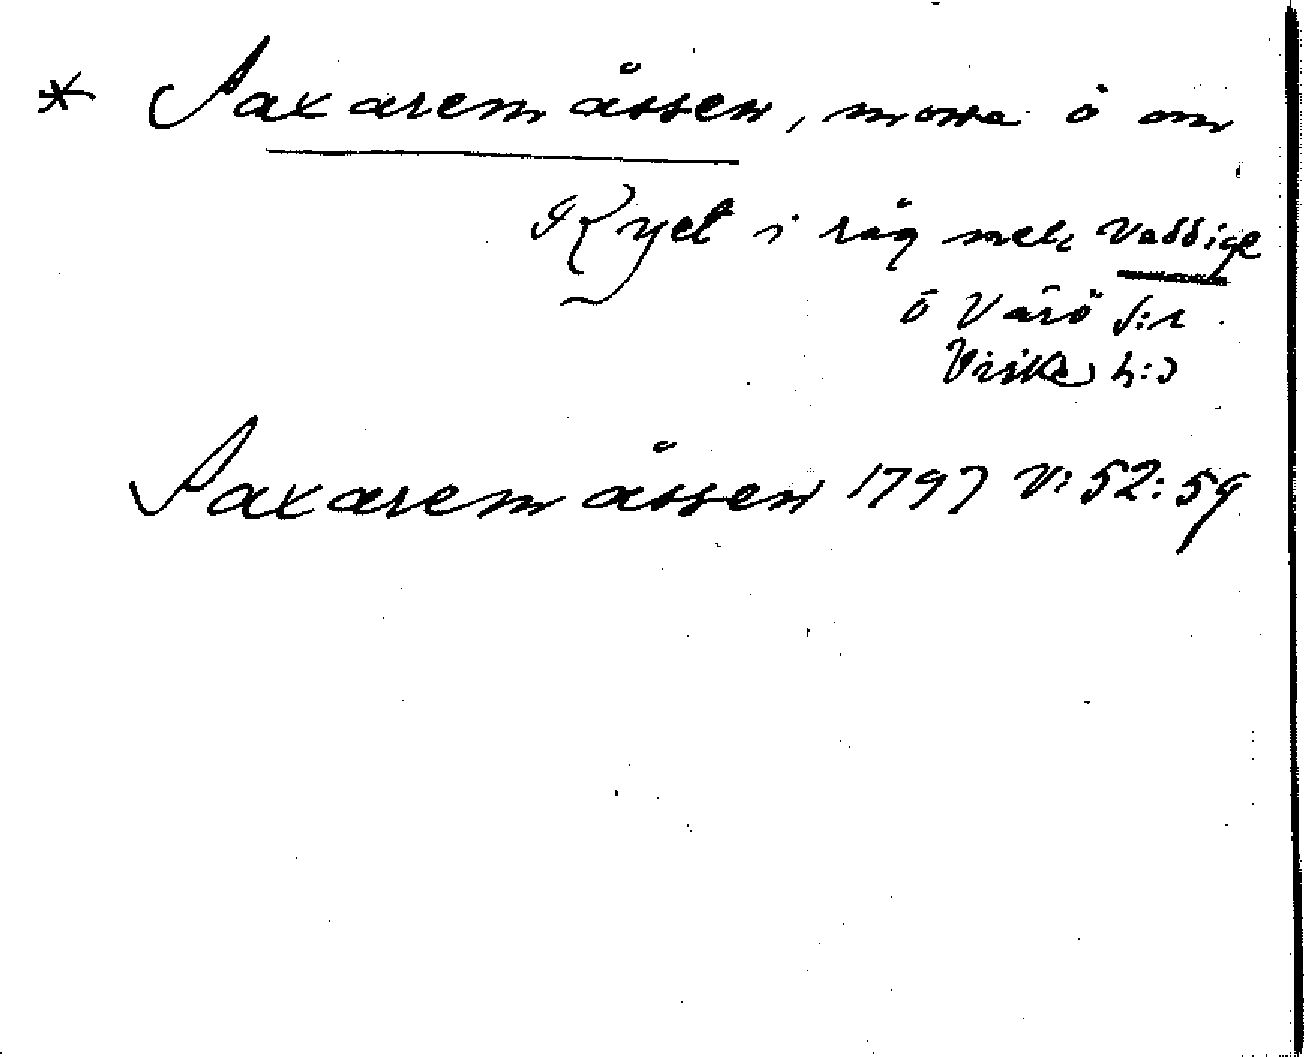 * Saxaremåssen, mosse ö om
Kyet i råg mell Väddige
o Värö s:n
Viske h:d
Saxaremåssen 1797 V: 52:59